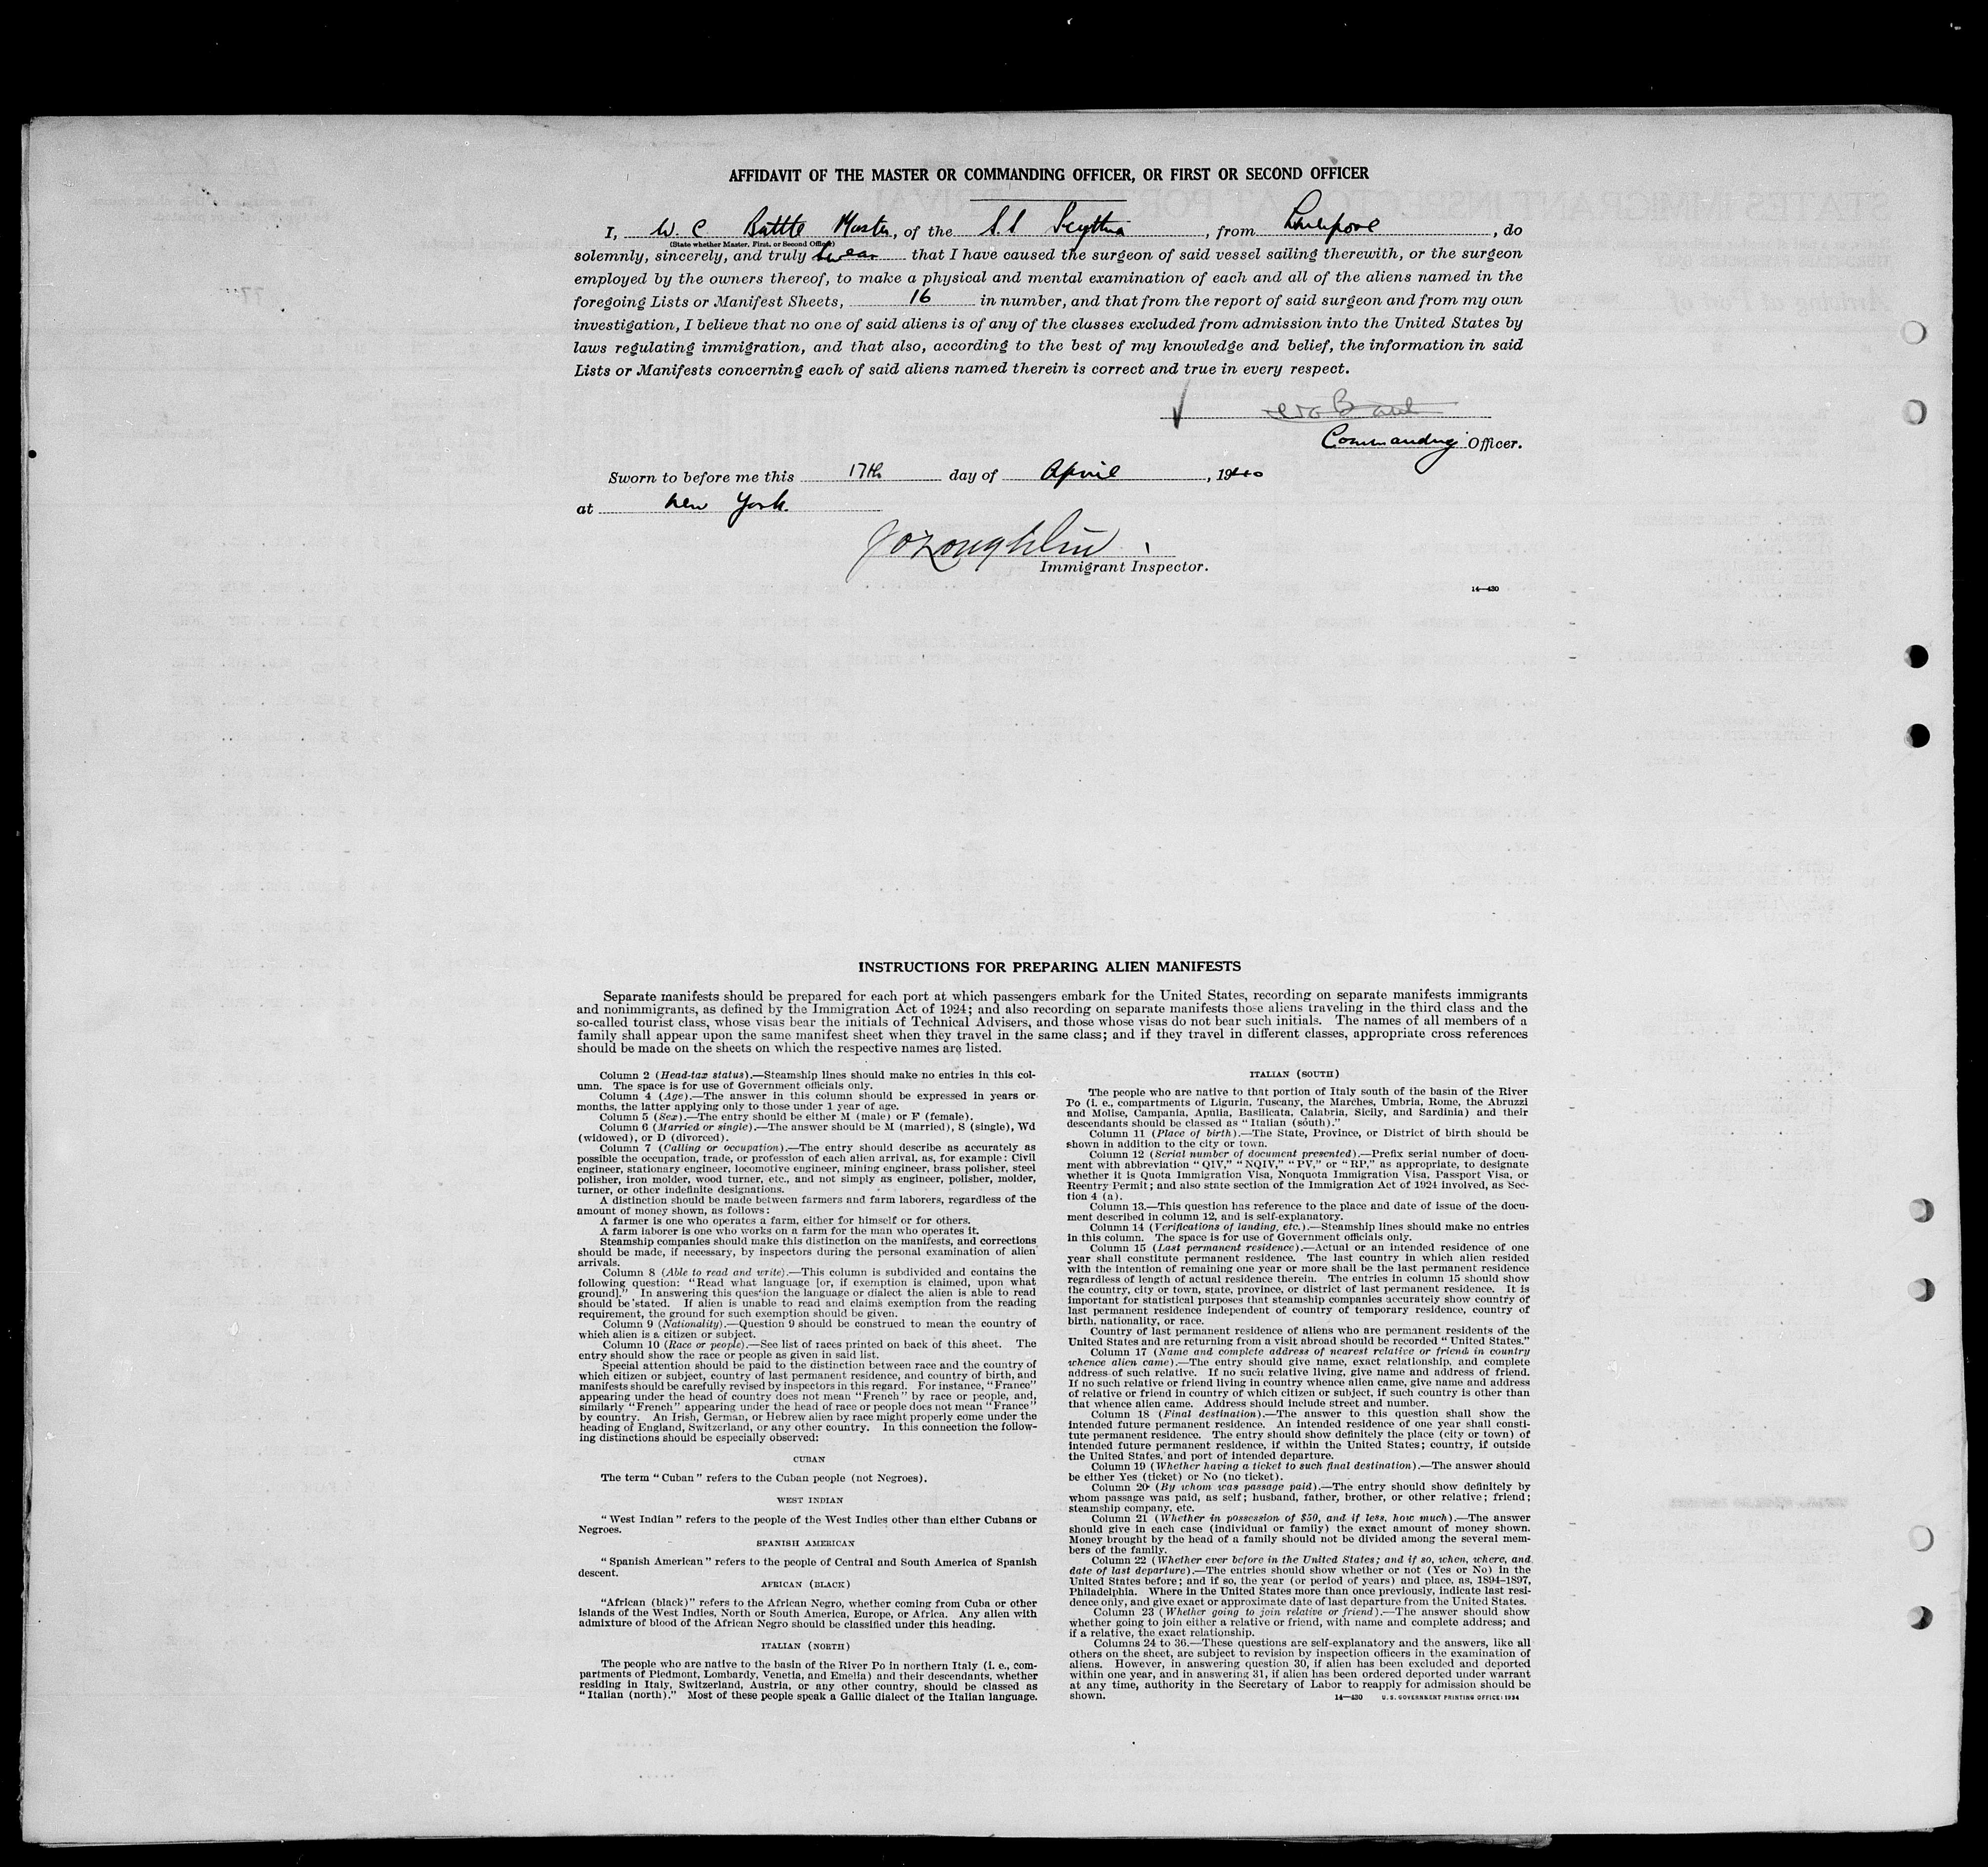 AFFIDAVIT OF THE MASTER OR COMMANDING OFFICER, OR FIRST OR SECOND OFFICER
I, W. C Battle Master, of the S.S Scythia, from Liverpool, do
(State whether Master, First, or Second Officer)
solemnly, sincerely, and truly swear that I have caused the surgeon of said vessel sailing therewith, or the surgeon
employed by the owners thereof, to make a physical and mental examination of each and all of the aliens named in the
foregoing Lists or Manifest Sheets, 16 in number, and that from the report of said surgeon and from my own
investigation, I believe that no one of said aliens is of any of the classes excluded from admission into the United States by
laws regulating immigration, and that also, according to the best of my knowledge and belief, the information in said
Lists or Manifests concerning each of said aliens named therein is correct and true in every respect.
Commanding Officer.
Sworn to before me this 17th day of April, 1940
at New York.
JOLoughlin
Immigrant Inspector.
14—430
INSTRUCTIONS FOR PREPARING ALIEN MANIFESTS
Separate manifests should be prepared for each port at which passengers embark for the United States, recording on separate manifests immigrants
and nonimmigrants, as defined by the Immigration Act of 1924; and also recording on separate manifests those aliens traveling in the third class and the
so-called tourist class, whose visas bear the initials of Technical Advisers, and those whose visas do not bear such initials. The names of all members of a
family shall appear upon the same manifest sheet when they travel in the same class; and if they travel in different classes, appropriate cross references
should be made on the sheets on which the respective names are listed.
Column 2 (Head-tax status).—Steamship lines should make no entries in this col-
umn. The space is for use of Government officials only.
Column 4 (Age).—The answer in this column should be expressed in years or
months, the latter applying only to those under 1 year of age.
Column 5 (Sex).—The entry should be either M (male) or F (female).
Column 6 (Married or single).—The answer should be M (married), S (single), Wd
(widowed), or D (divorced).
Column 7 (Calling or occupation).—The entry should describe as accurately as
possible the occupation, trade, or profession of each alien arrival, as, for example: Civil
engineer, stationary engineer, locomotive engineer, mining engineer, brass polisher, steel
polisher, iron molder, wood turner, etc., and not simply as engineer, polisher, molder,
turner, or other indefinite designations.
A distinction should be made between farmers and farm laborers, regardless of the
amount of money shown, as follows:
A farmer is one who operates a farm, either for himself or for others.
A farm laborer is one who works on a farm for the man who operates it.
Steamship companies should make this distinction on the manifests, and corrections
should be made, if necessary, by inspectors during the personal examination of alien
arrivals.
Column 8 (Able to read and write).—This column is subdivided and contains the
following question: "Read what language [or, if exemption is claimed, upon what
ground]." In answering this question the language or dialect the alien is able to read
should be stated. If alien is unable to read and claims exemption from the reading
requirement, the ground for such exemption should be given.
Column 9 (Nationality).—Question 9 should be construed to mean the country of
which alien is a citizen or subject.
Column 10 (Race or people).—See list of races printed on back of this sheet. The
entry should show the race or people as given in said list.
Special attention should be paid to the distinction between race and the country of
which citizen or subject, country of last permanent residence, and country of birth, and
manifests should be carefully revised by inspectors in this regard. For instance, "France"
appearing under the head of country does not mean "French" by race or people, and,
similarly "French" appearing under the head of race or people does not mean "France"
by country. An Irish, German, or Hebrew alien by race might properly come under the
heading of England, Switzerland, or any other country. In this connection the follow-
ing distinctions should be especially observed:
CUBAN
The term "Cuban" refers to the Cuban people (not Negroes).
WEST INDIAN
"West Indian" refers to the people of the West Indies other than either Cubans or
Negroes.
SPANISH AMERICAN
"Spanish American" refers to the people of Central and South America of Spanish
descent.
AFRICAN (BLACK)
"African (black)" refers to the African Negro, whether coming from Cuba or other
islands of the West Indies, North or South America, Europe, or Africa. Any alien with
admixture of blood of the African Negro should be classified under this heading.
ITALIAN (NORTH)
The people who are native to the basin of the River Po in northern Italy (i. e., com-
partments of Piedmont, Lombardy, Venetia, and Emelia) and their descendants, whether
residing in Italy, Switzerland, Austria, or any other country, should be classed as
"Italian (north)." Most of these people speak a Gallic dialect of the Italian language.
ITALIAN (SOUTH)
The people who are native to that portion of Italy south of the basin of the River
Po (i. e., compartments of Liguria, Tuscany, the Marches, Umbria, Rome, the Abruzzi
and Molise, Campania, Apulia, Basilicata, Calabria, Sicily, and Sardinia) and their
descendants should be classed as "Italian (south)."
Column 11 (Place of birth).—The State, Province, or District of birth should be
shown in addition to the city or town.
Column 12 (Serial number of document presented).—Prefix serial number of docu-
ment with abbreviation "QIV," "NQIV," "PV," or "RP," as appropriate, to designate
whether it is Quota Immigration Visa, Nonquota Immigration Visa, Passport Visa, or
Reentry Permit; and also state section of the Immigration Act of 1924 involved, as Sec-
tion 4 (a).
Column 13.—This question has reference to the place and date of issue of the docu-
ment described in column 12, and is self-explanatory.
Column 14 (Verifications of landing, etc.).—Steamship lines should make no entries
in this column. The space is for use of Government officials only.
Column 15 (Last permanent residence).—Actual or an intended residence of one
year shall constitute permanent residence. The last country in which alien resided
with the intention of remaining one year or more shall be the last permanent residence
regardless of length of actual residence therein. The entries in column 15 should show
the country, city or town, state, province, or district of last permanent residence. It is
important for statistical purposes that steamship companies accurately show country of
last permanent residence independent of country of temporary residence, country of
birth, nationality, or race.
Country of last permanent residence of aliens who are permanent residents of the
United States and are returning from a visit abroad should be recorded "United States."
Column 17 (Name and complete address of nearest relative or friend in country
whence alien came).—The entry should give name, exact relationship, and complete
address of such relative. If no such relative living, give name and address of friend.
If no such relative or friend living in country whence alien came, give name and address
of relative or friend in country of which citizen or subject, if such country is other than
that whence alien came. Address should include street and number.
Column 18 (Final destination).—The answer to this question shall show the
intended future permanent residence. An intended residence of one year shall consti-
tute permanent residence. The entry should show definitely the place (city or town) of
intended future permanent residence, if within the United States; country, if outside
the United States, and port of intended departure.
Column 19 (Whether having a ticket to such final destination).—The answer should
be either Yes (ticket) or No (no ticket).
Column 20 (By whom was passage paid).—The entry should show definitely by
whom passage was paid, as self; husband, father, brother, or other relative; friend;
steamship company, etc.
Column 21 (Whether in possession of $50, and if less, how much).—The answer
should give in each case (individual or family) the exact amount of money shown.
Money brought by the head of a family should not be divided among the several mem-
bers of the family.
Column 22 (Whether ever before in the United States; and if so, when, where, and
date of last departure).—The entries should show whether or not (Yes or No) in the
United States before; and if so, the year (or period of years) and place, as, 1894–1897,
Philadelphia. Where in the United States more than once previously, indicate last resi-
dence only, and give exact or approximate date of last departure from the United States.
Column 23 (Whether going to join relative or friend).—The answer should show
whether going to join either a relative or friend, with name and complete address; and
if a relative, the exact relationship.
Columns 24 to 36.—These questions are self-explanatory and the answers, like all
others on the sheet, are subject to revision by inspection officers in the examination of
aliens. However, in answering question 30, if alien has been excluded and deported
within one year, and in answering 31, if alien has been ordered deported under warrant
at any time, authority in the Secretary of Labor to reapply for admission should be
shown.
14—430 U. S. GOVERNMENT PRINTING OFFICE: 1934